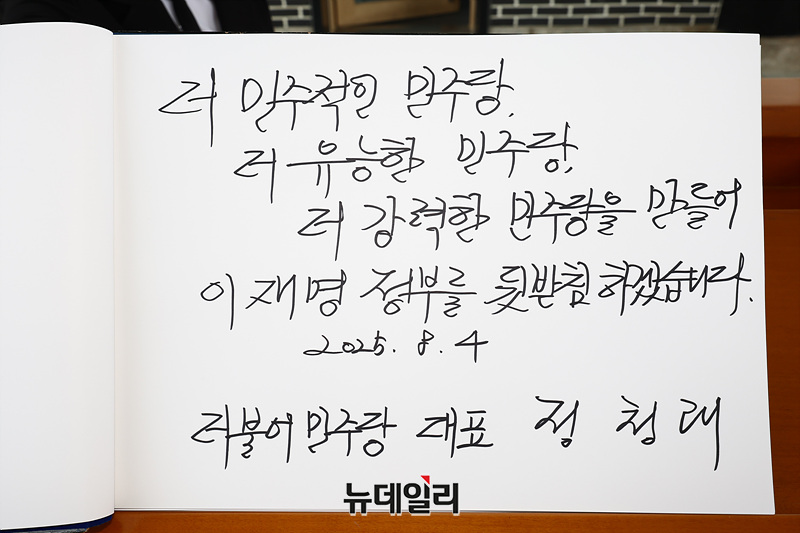 더 민주적인 민주당,
더 유능한 민주당,
더 강력한 민주당을 만들어
이재명 정부를 뒷받침 하겠습니다.
2025. 8. 4
더불어민주당 대표 정청래
뉴데일리